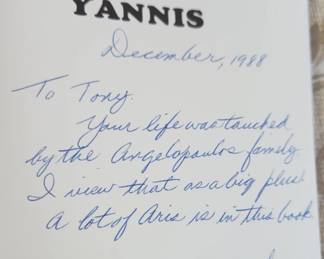 YANNIS
December, 1988
To Tony.
Your life was touched
by the Angelopoulos family.
I view that as a big plus.
A lot of Aris is in this book